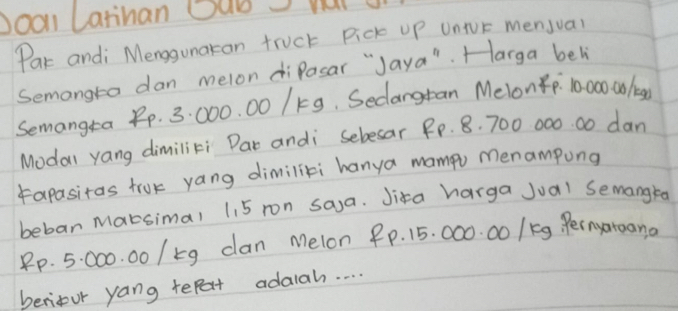 Soal Latihan Bab 3 hal
Pak andi Menggunakan truck Pick up untuk menjual
Semangka dan melon dipasar "Jaya". Harga beli
Semangka Rp. 3.000.00/kg. Sedangkan Melon Rp. 10.000.00/kg
Modal yang dimiliki Pak andi sebesar Rp. 8.700.000.00 dan
kapasitas truk yang dimiliki hanya mampu menampung
beban maksimal 1,5 ton saja. Jika harga Jual semangka
Rp. 5.000.00/kg dan Melon Rp. 15.000.00/kg Pernyataana
berikut yang tepat adalah ....